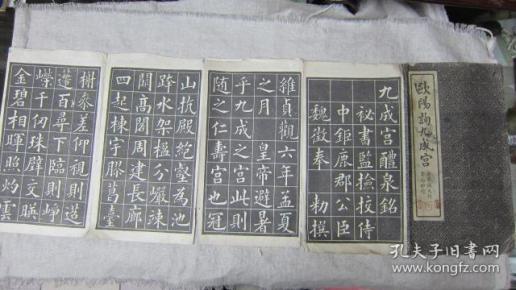 歐陽詢九成宮
九成宮醴泉銘
秘書監撿挍侍
中鉅鹿郡公臣
魏徵奉 勑撰
維貞觀六年孟夏
之月 皇帝避暑
乎九成之宮此則
随之仁壽宮也冠
山抗殿絶壑為池
跨水架楹分巖竦
闕高閣周建長廊
四起棟宇膠葛臺
榭參差仰視則迢
遰百尋下臨則崢
嶸千仞珠璧交暎
金碧相暉照灼雲
孔夫子旧書网
www.kongfz.com